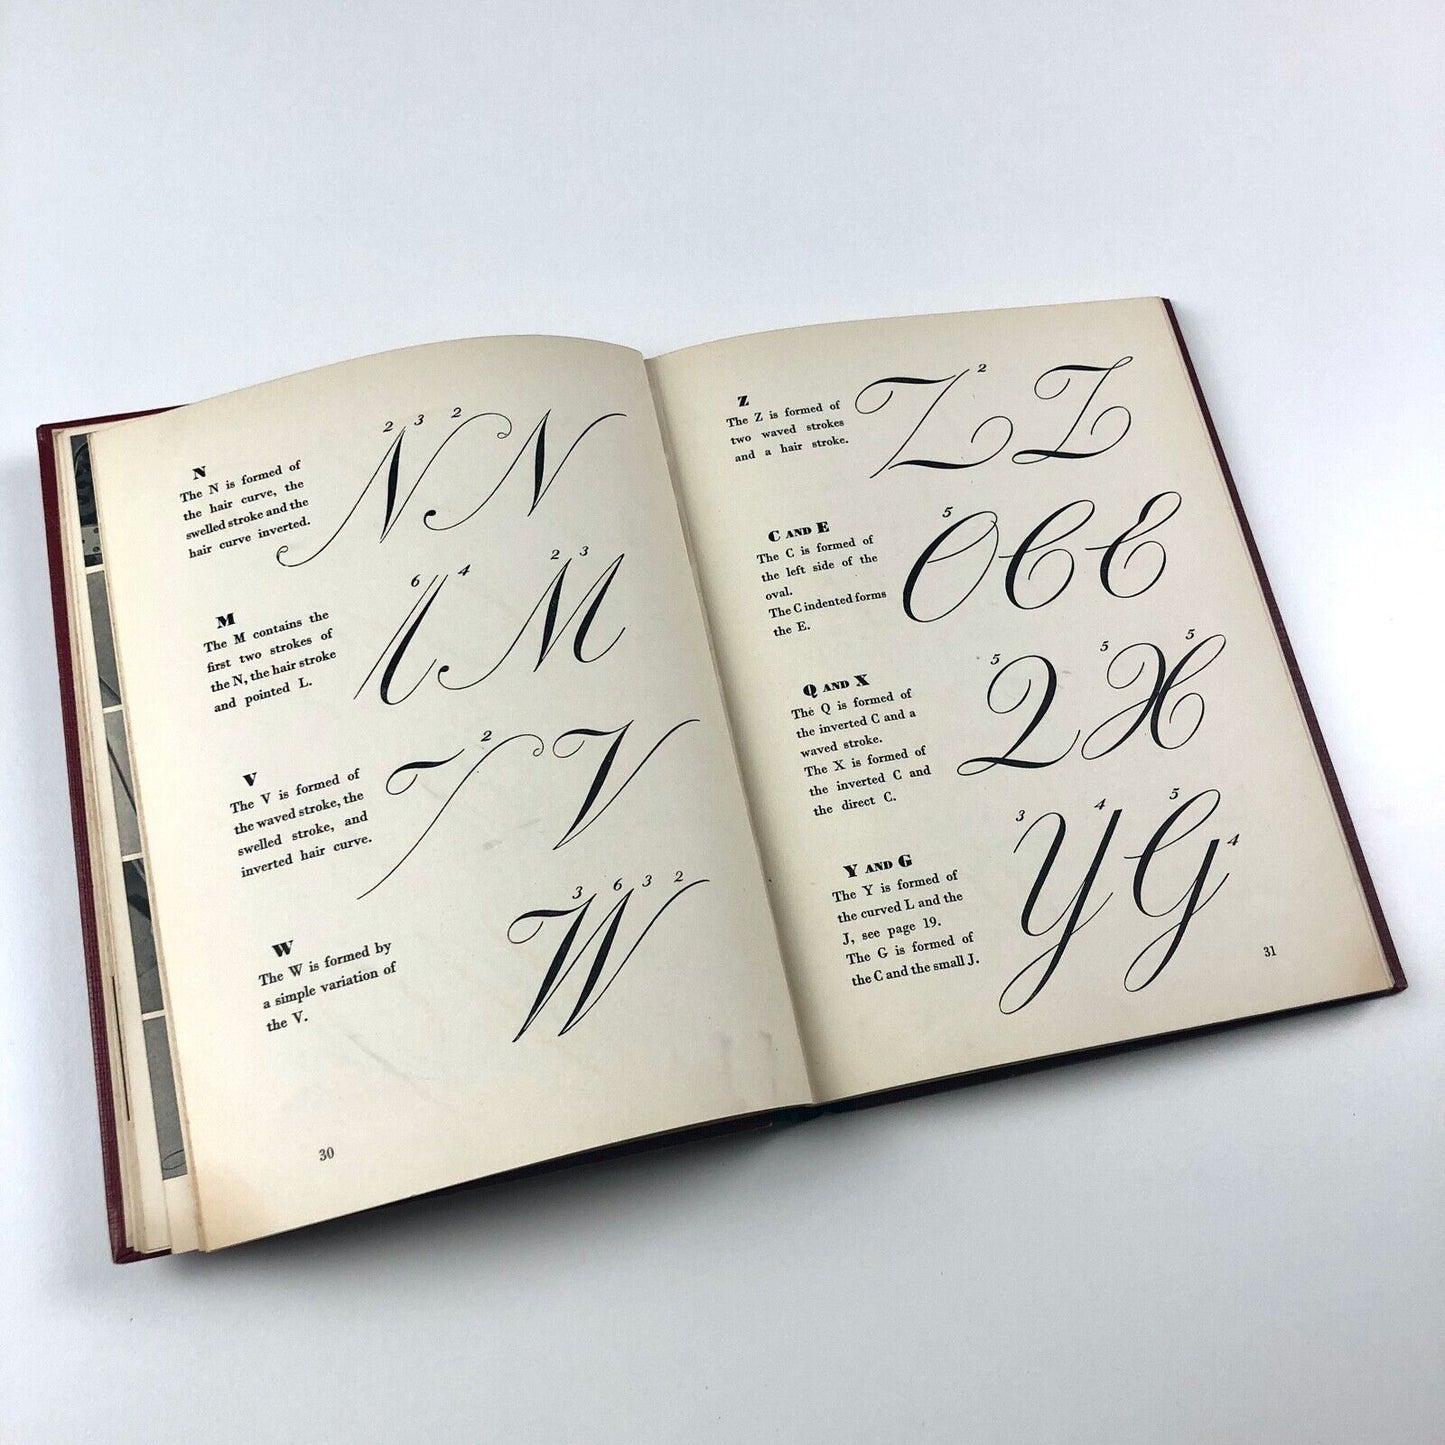 N
The N is formed of
the hair curve, the
swelled stroke and the
hair curve inverted.
2 3 2
N N
M
The M contains the
first two strokes of
the N, the hair stroke
and pointed L.
6 4 2 3
l M
V
The V is formed of
the waved stroke, the
swelled stroke, and
inverted hair curve.
2
V
W
The W is formed by
a simple variation of
the V.
3 6 3 2
W
30
Z
The Z is formed of
two waved strokes
and a hair stroke.
2
Z Z
C AND E
The C is formed of
the left side of the
oval.
The C indented forms
the E.
5
O C E
Q AND X
The Q is formed of
the inverted C and a
waved stroke.
The X is formed of
the inverted C and
the direct C.
5 5 5
Q X
Y AND G
The Y is formed of
the curved L and the
J, see page 19.
The G is formed of
the C and the small J.
3 4 5 4
Y G
31